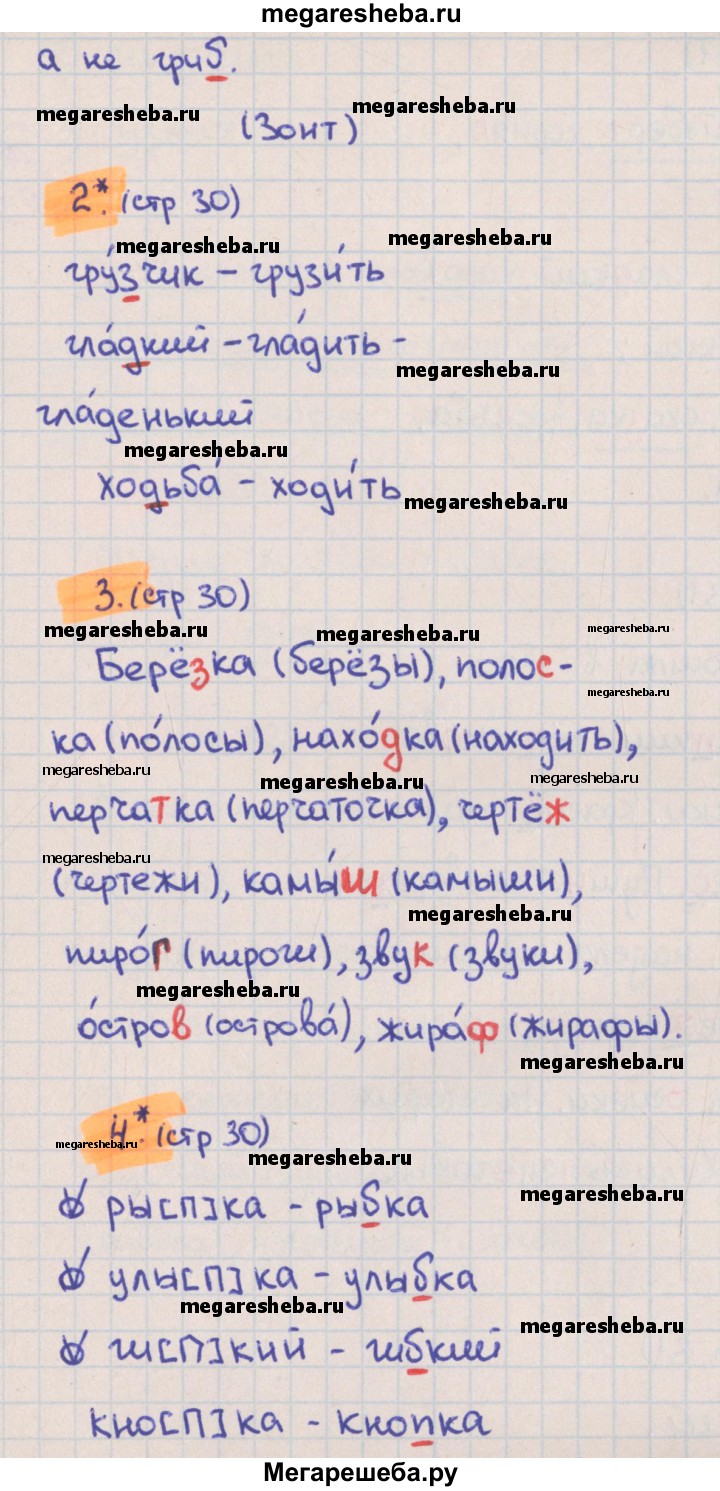 megaresheba.ru
а не гриб.
megaresheba.ru megaresheba.ru
(Зонт)
2*. (стр 30)
megaresheba.ru megaresheba.ru
гру́зчик – грузи́ть
гла́дкий – гла́дить –
megaresheba.ru
гла́денький
megaresheba.ru
ходьба́ – ходи́ть
megaresheba.ru
3. (стр 30)
megaresheba.ru megaresheba.ru megaresheba.ru
Берёзка (берёзы), полос-
megaresheba.ru
ка (по́лосы), нахо́дка (находить),
megaresheba.ru megaresheba.ru megaresheba.ru
перчатка (перчаточка), чертёж
megaresheba.ru
(чертежи), камы́ш (камыши),
megaresheba.ru
пиро́г (пироги), звук (звуки),
megaresheba.ru
о́стров (острова́), жира́ф (жирафы).
megaresheba.ru
4*. (стр 30)
megaresheba.ru megaresheba.ru
ры[п]ка – рыбка
megaresheba.ru
улы[п]ка – улыбка
megaresheba.ru megaresheba.ru
ги[п]кий – гибкий
кно[п]ка – кнопка
Мегарешеба.ру